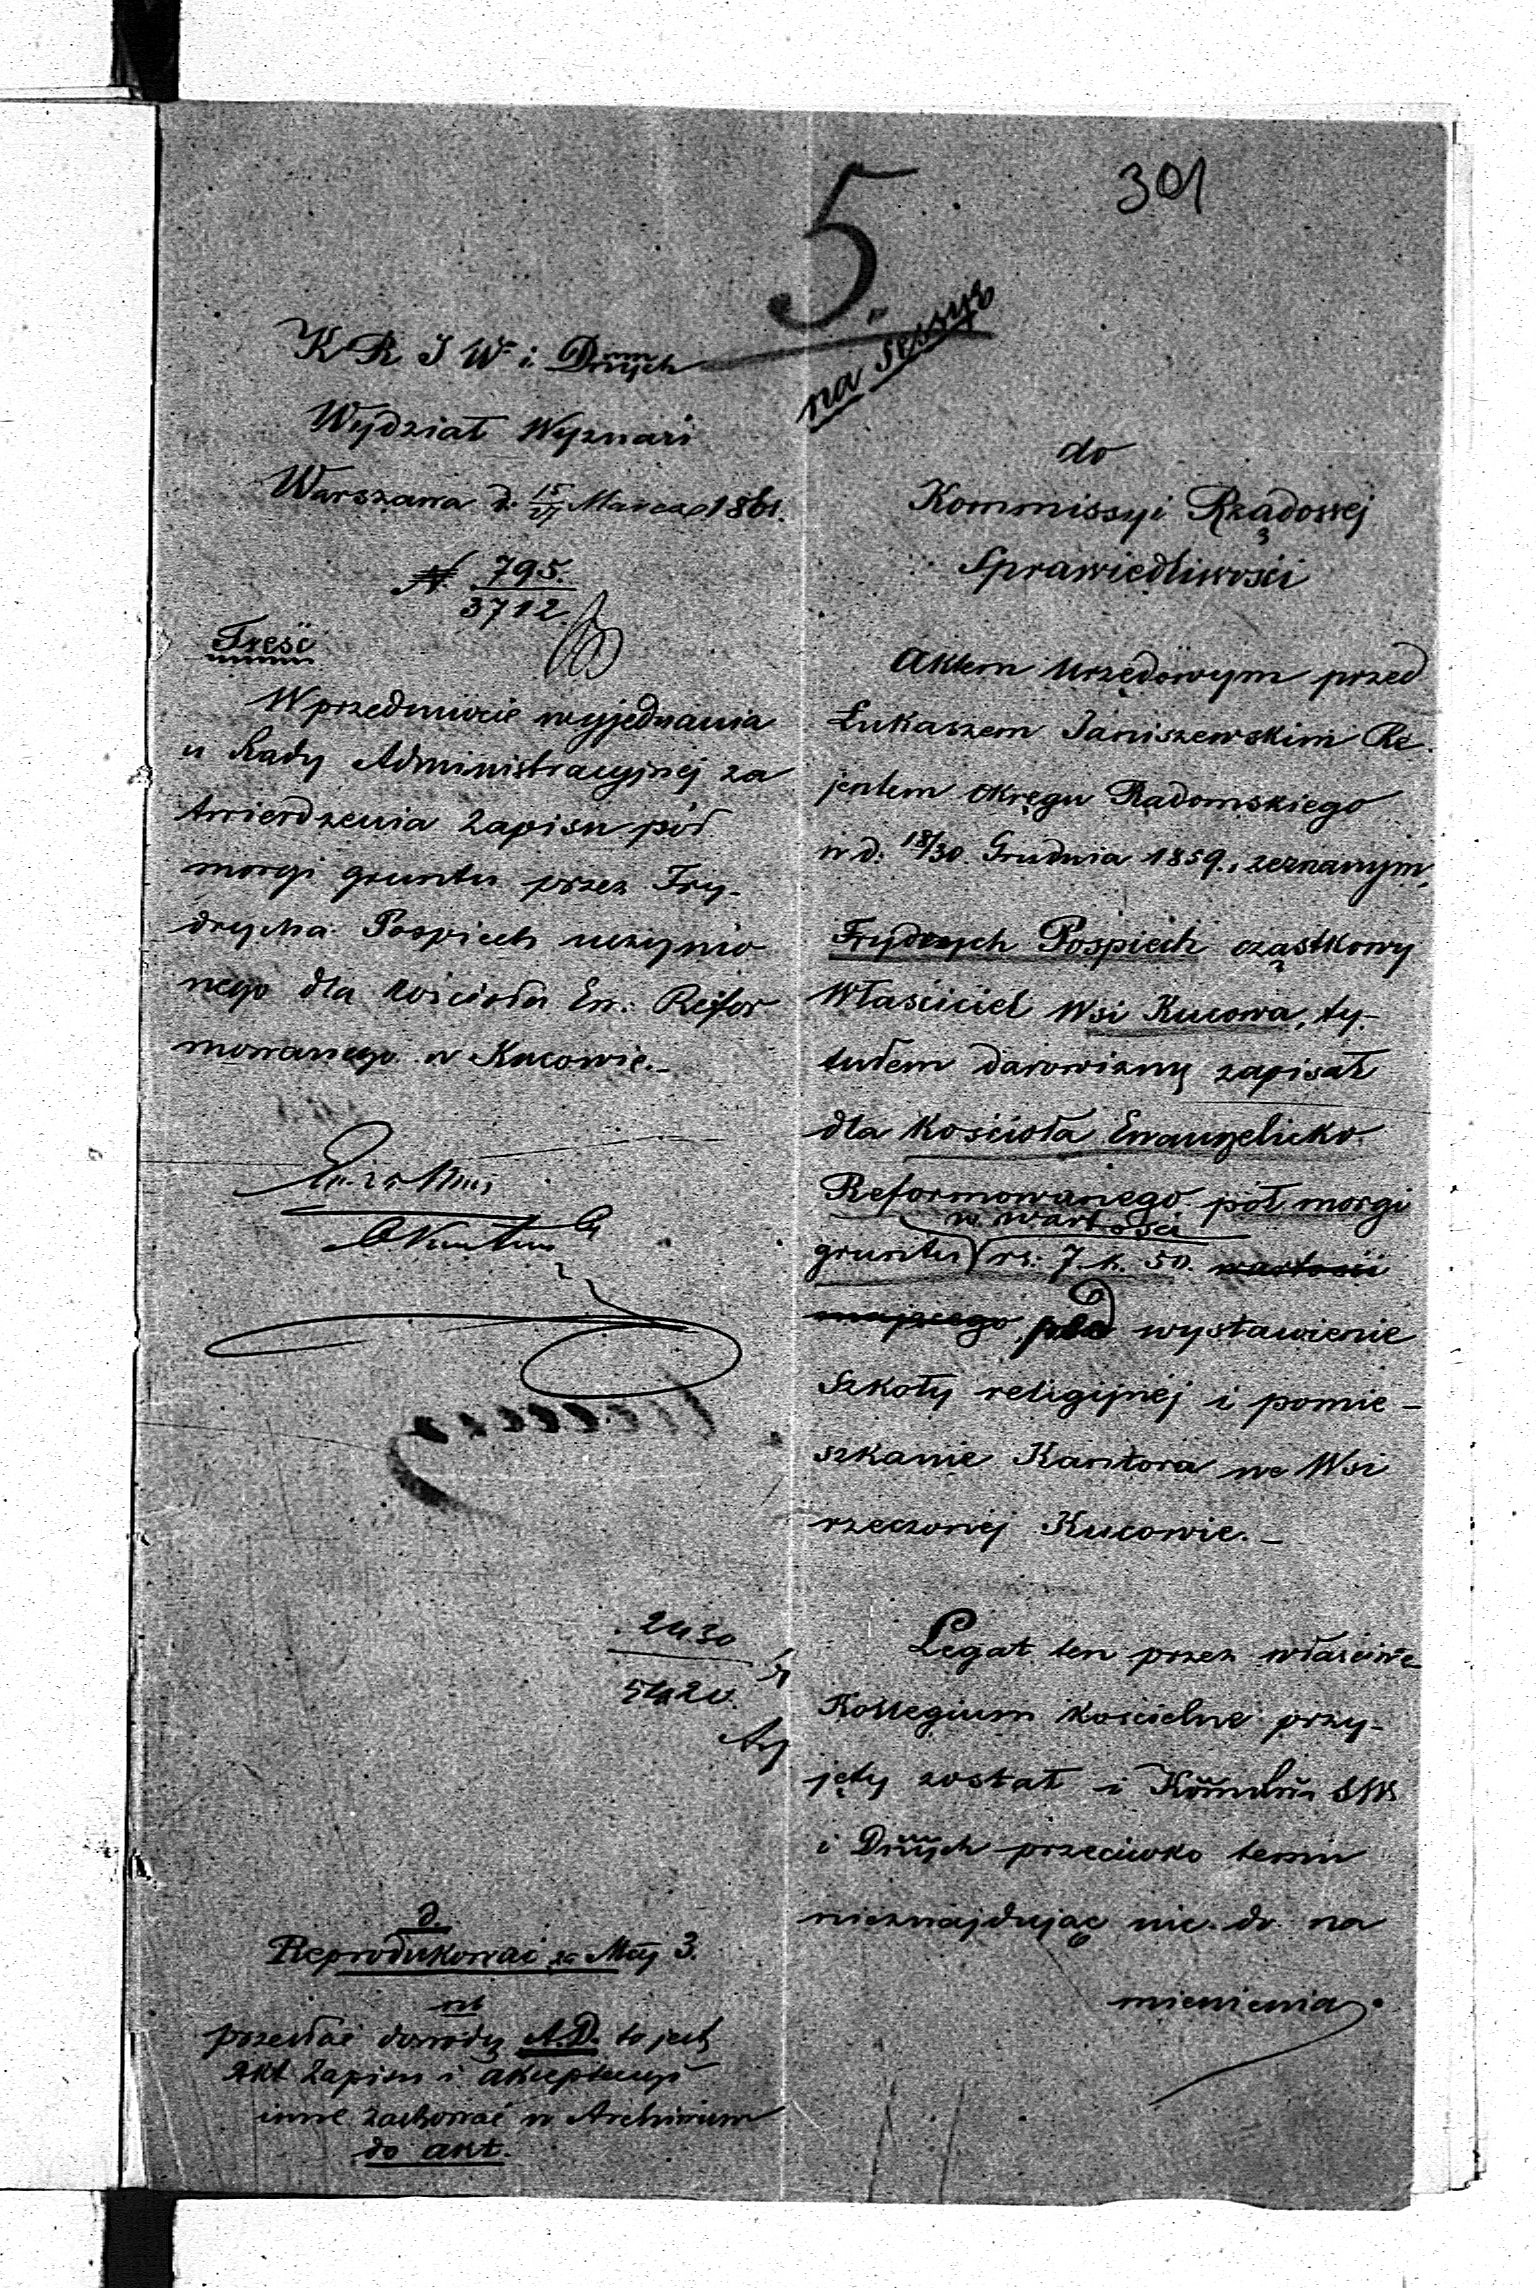 301
5.
na sessyę
K R S W i D̅n̅ych
Wydział Wyznań
Warszawa d. 15/27 Marca 1861.
N 795./3712.
Treść
W przedmiocie wyjednania
u Rady Administracyjnej za
twierdzenia zapisu pół
morgi gruntu przez Fry-
drycha Pospiech uczynio
nego dla kościoła Ew: Refor
mowanego w Kucowie._
2430
5420.
d.
Reprodukować Maj 3.
nb
przesłać dowody A.D. to jest
akt zapisu i akceptacyi
inne zachować w Archiwum
do akt.
do
Kommissyi Rządowej
Sprawiedliwości
Aktem Urzędowym przed
Łukaszem Janiszewskim Re-
jentem Okręgu Radomskiego
w d: 18/30 Grudnia 1859., zeznanym,
Frydrych Pospiech cząstkowy
Właściciel Wsi Kucowa, ty-
tułem darowizny zapisał
dla Kościoła Ewangelicko
Reformowanego pół morgi
w wartości
gruntu rs: 7. k. 50. wartości
mającego pod wystawienie
Szkoły religijnej i pomie-
szkanie Kantora we Wsi
rzeczonej Kucowie._
Legat ten przez właściwe
Kollegium kościelne przy-
jęty został i SW
i D̅n̅ych przeciwko temu
nieznajdując nic do na
mienienia.